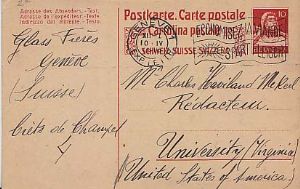 Adresse des Absenders. - Text.
Adresse de l'expéditeur. - Texte.
Indirizzo del mittente. - Testo.
Postkarte. Carte postale
Cartolina postale
SCHWEIZ. SUISSE. SVIZZERA.
10
GENÈVE
Glass Frères
Genève
(Suisse)
Crêts de Champel
4
Mr Charles Haviland McKell
Rédacteur.
University (Virginia)
United States of America